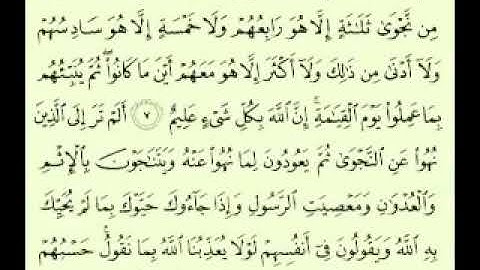 مِن نَّجْوَىٰ ثَلَـٰثَةٍ إِلَّا هُوَ رَابِعُهُمْ وَلَا خَمْسَةٍ إِلَّا هُوَ سَادِسُهُمْ
وَلَآ أَدْنَىٰ مِن ذَٰلِكَ وَلَآ أَكْثَرَ إِلَّا هُوَ مَعَهُمْ أَيْنَ مَا كَانُوا۟ ۖ ثُمَّ يُنَبِّئُهُم
بِمَا عَمِلُوا۟ يَوْمَ ٱلْقِيَـٰمَةِ ۚ إِنَّ ٱللَّهَ بِكُلِّ شَىْءٍ عَلِيمٌ ٧ أَلَمْ تَرَ إِلَى ٱلَّذِينَ
نُهُوا۟ عَنِ ٱلنَّجْوَىٰ ثُمَّ يَعُودُونَ لِمَا نُهُوا۟ عَنْهُ وَيَتَنَـٰجَوْنَ بِٱلْإِثْمِ
وَٱلْعُدْوَٰنِ وَمَعْصِيَتِ ٱلرَّسُولِ وَإِذَا جَآءُوكَ حَيَّوْكَ بِمَا لَمْ يُحَيِّكَ
بِهِ ٱللَّهُ وَيَقُولُونَ فِىٓ أَنفُسِهِمْ لَوْلَا يُعَذِّبُنَا ٱللَّهُ بِمَا نَقُولُ ۚ حَسْبُهُمْ